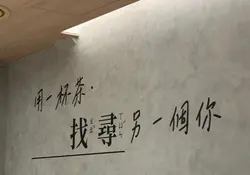 用一杯茶．
找尋另一個你